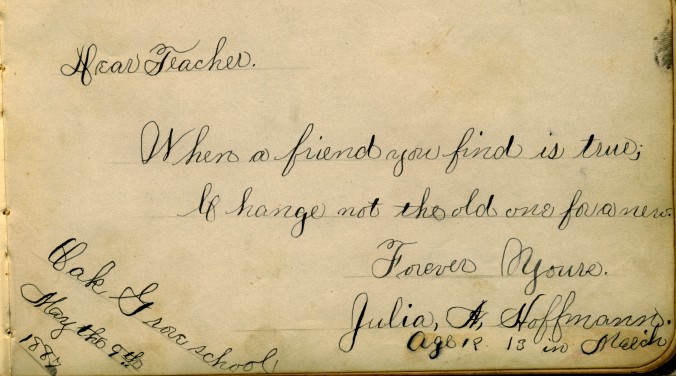 Dear Teacher.
When a friend you find is true;
Change not the old one for a new.
Forever Yours.
Julia, A, Hoffmann.
Age 12. 13 in March
Oak Grove school
May the 9th
1887